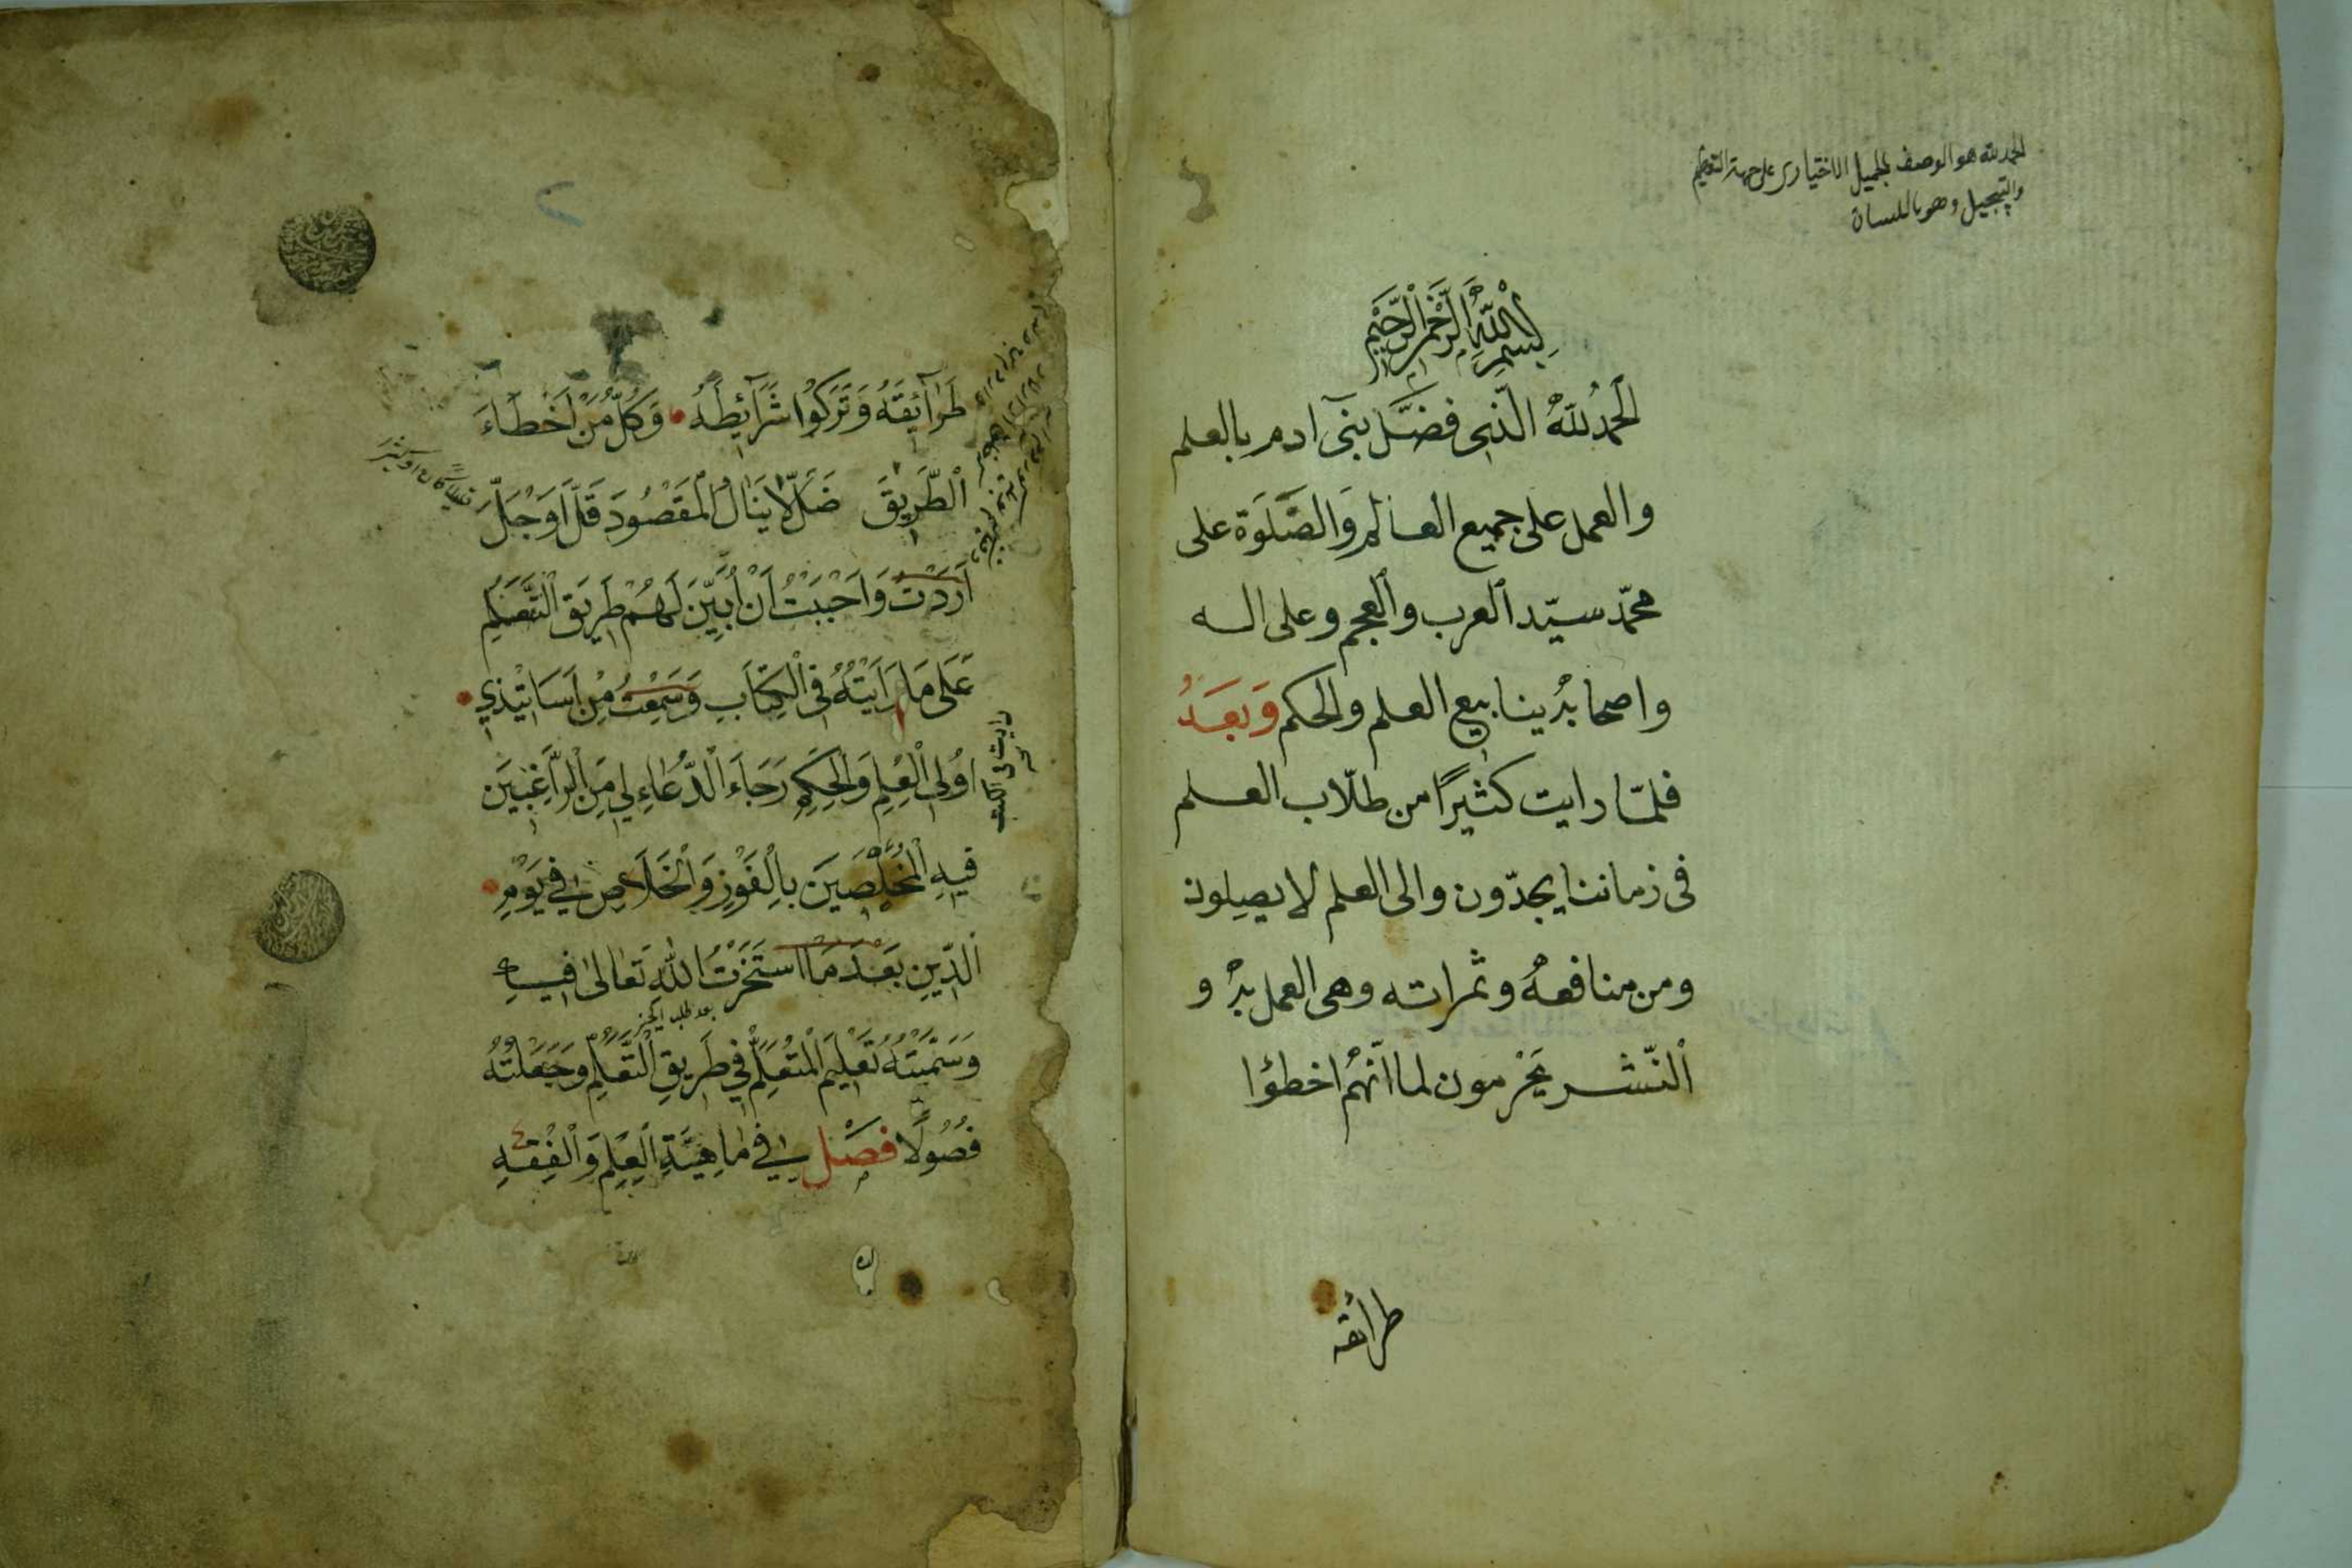 الحمد لله هو الوصف بالجميل الاختيارى على جهة التعظيم
والتبجيل وهو باللسان
بِسْمِ اللهِ الرَّحْمنِ الرَّحِيمِ
الحمدُ للهِ الّذى فضَّل بنىٓ ادم بالعلم
والعمل على جميع العالم وَالصَّلوَة على
محمّد سيّد العرب والعجم وعلى اله
واصحابهُ ينابيع العلم والحكم وَبَعَدُ
فلمّا رايت كثيرًا من طلّاب العلم
فى زماننا يجدّون والى العلم لا يصِلون
ومن منافعهُ وثمراته وهى العمل بهُ و
النّشر يَحْرمون لما انّهُم اخطؤا
طرائقه
طَرَآئِقَهُ وَتَرَكُوا شَرَآئِطَهُ وَكُلُّ مَنْ اَخْطَاءَ
الطَّرِيقَ ضَلَّ لَا يَنَالُ الْمَقْصُودَ قَلَّ اَوْ جَلَّ
قليلا كان او كثير
اَرَدْتُ وَاَحْبَبْتُ اَنْ اُبَيِّنَ لَهُمْ طَرِيقَ التَّعَلُّمِ
عَلَى مَا رَاَيْتُهُ فِى الْكِتَابِ وَسَمِعْتُ مِنْ اَسَاتِيْذِي
رايت فى الكتب
اوُلِى الْعِلْمِ وَالْحِكَمِ رَجَاءَ الدُّعَاءِ لِي مِنَ الرَّاغِبِيَن
فِيهِ الْمُخَلَّصِيَن بِالْفَوْزِ وَالْخَلَاصِ فِي يَوْمِ
الدّيِنِ بَعَدَ مَا اسْتَخَرْتُ اللهَ تَعَالىٰ فِيهِ
بعد طلب الخير
وَسَمَّيْتُهُ تَعْلِيَم الْمُتَعَلِّمِ فِي طَرِيقِ التَّعَلُّمِ وَجَعَلْتُهُ
فُصُولًا فَصْل فِي مَاهِيَّةِ الْعِلْمِ وَالْفِقْهِ